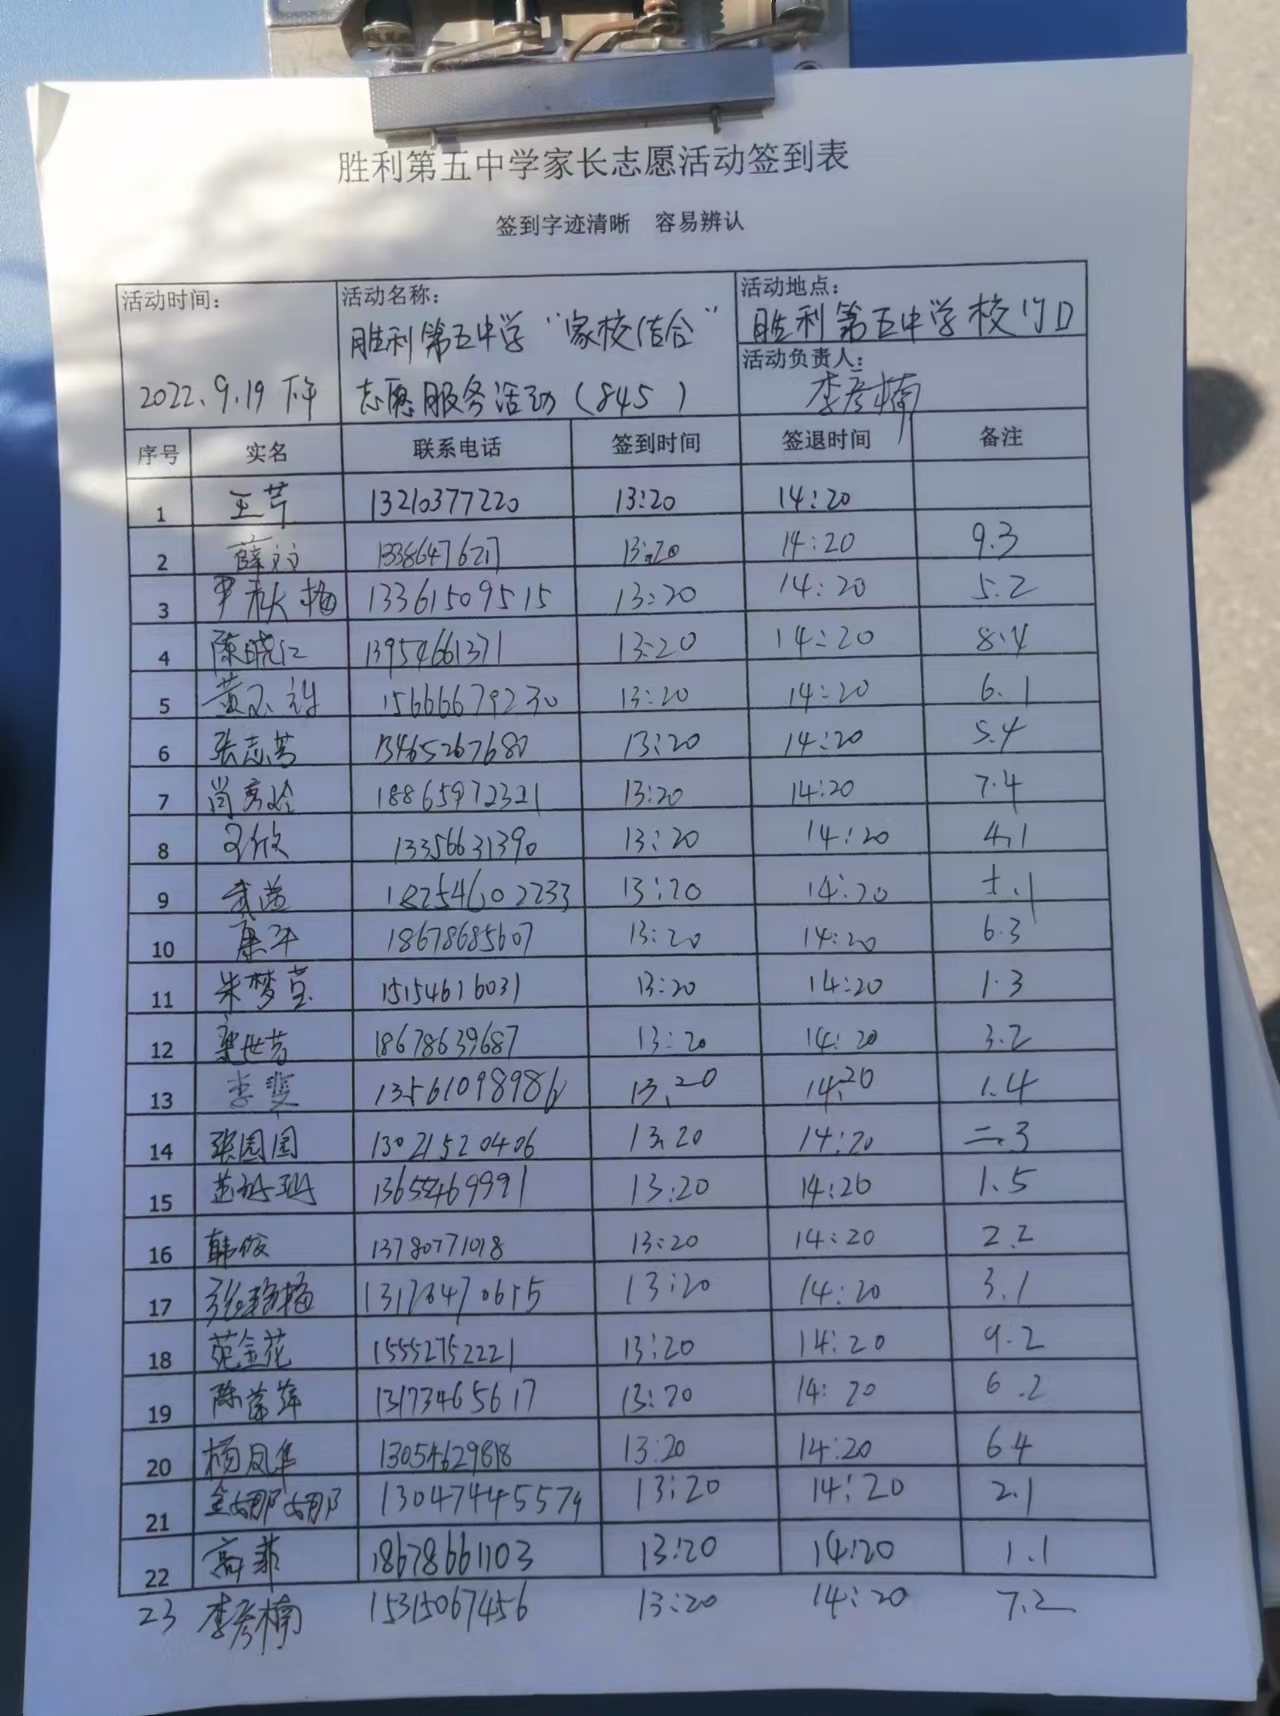 胜利第五中学家长志愿活动签到表
签到字迹清晰 容易辨认
活动时间: 2022.9.19 下午
活动名称: 胜利第五中学“家校结合”
志愿服务活动(845)
活动地点: 胜利第五中学校门口
活动负责人: 李彦楠
序号 实名 联系电话 签到时间 签退时间 备注
1 王芹 13210377220 13:20 14:20
2 薛文文 13386476217 13:20 14:20 9.3
3 尹秋梅 13361509515 13:20 14:20 5.2
4 陈晓红 13954661371 13:20 14:20 8.4
5 15666679230 13:20 14:20 6.1
6 张志芳 13465267680 13:20 14:20 5.4
7 肖彦玲 18865972321 13:20 14:20 7.4
8 13356631390 13:20 14:20 4.1
9 18254602233 13:20 14:20
10 康平 18678685607 13:20 14:20 6.3
11 朱梦莹 15154616031 13:20 14:20 1.3
12 18678639687 13:20 14:20 3.2
13 李斐 13561098986 13.20 14.20 1.4
14 张园园 13021520406 13.20 14:20 二.3
15 13:20 14:20 1.5
16 韩俊 13780771018 13:20 14:20 2.2
17 13:20 14:20 3.1
18 苑金花 15552752221 13:20 14:20 9.2
19 陈萍萍 13173465617 13:20 14:20 6.2
20 杨凤华 13054629818 13:20 14:20 6.4
21 金娜娜 13047445579 13:20 14:20 2.1
22 高菲 18678661103 13:20 14:20 1.1
23 李彦楠 15315067456 13:20 14:20 7.2